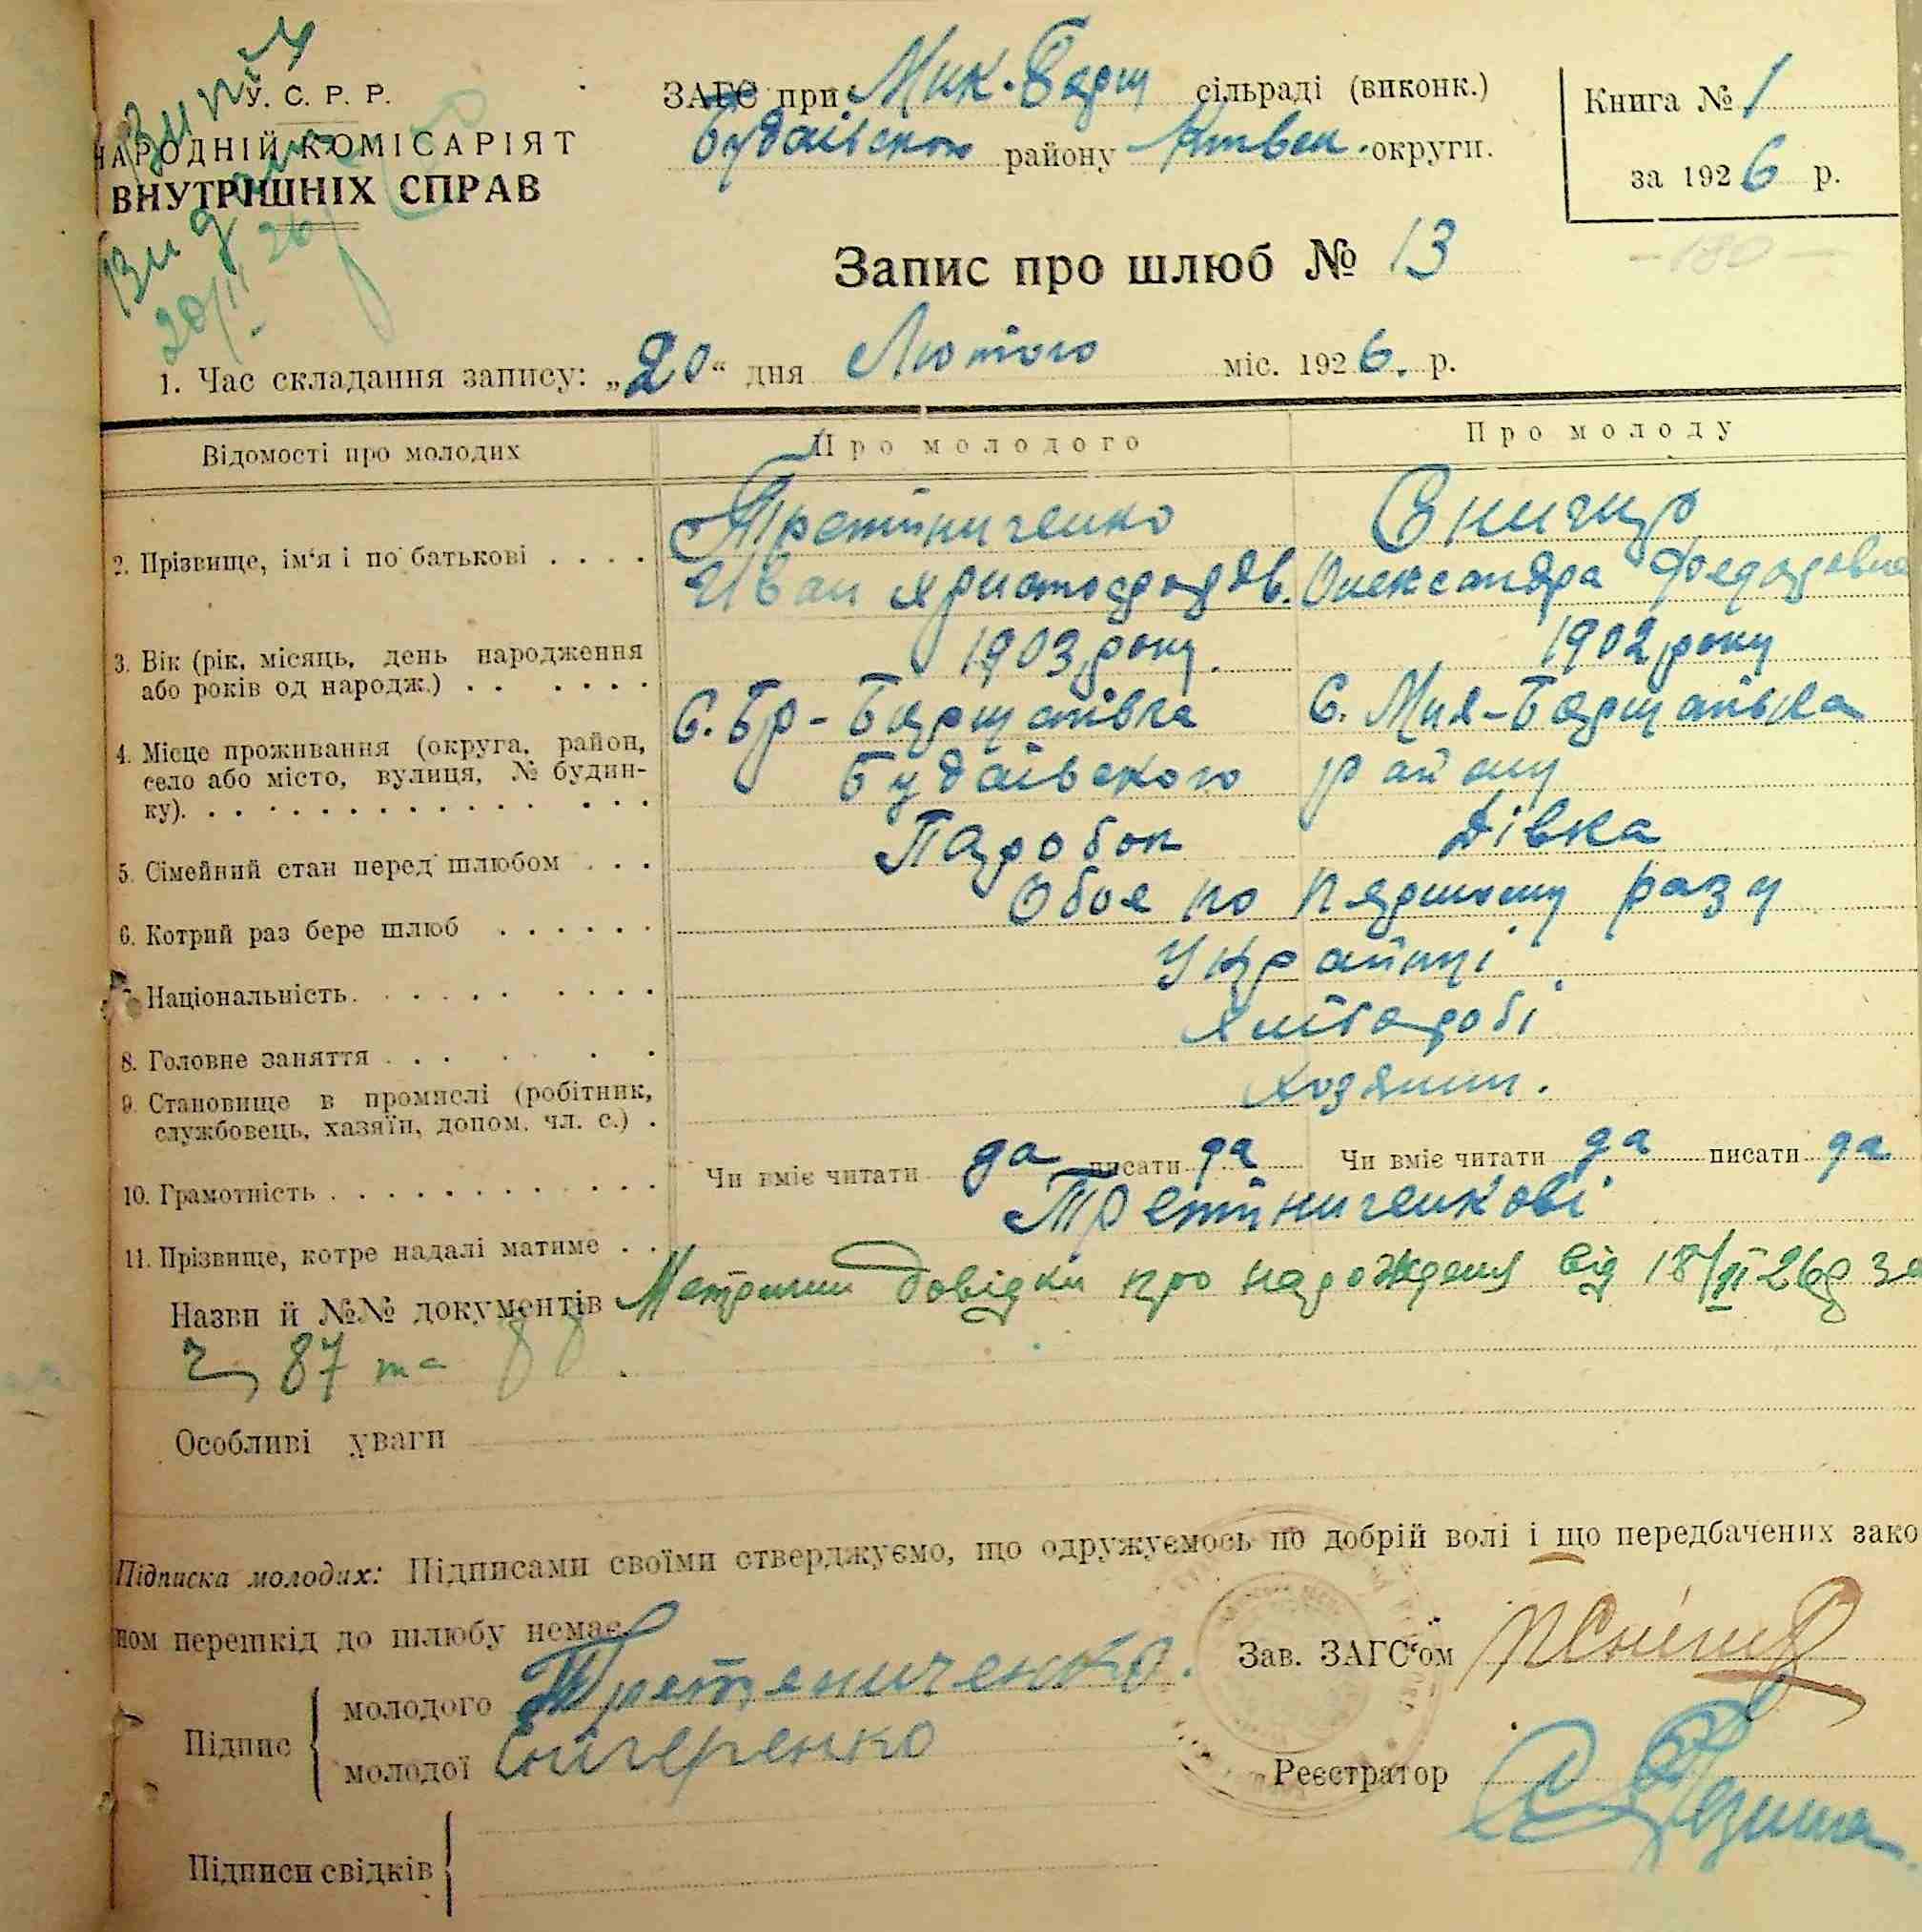 У. С. Р. Р.
НАРОДНІЙ КОМІСАРІЯТ
ВНУТРІШНІХ СПРАВ
20/II 26
ЗАГС при Мик-Борщ сільраді (виконк.)
Будаївського району округи.
Книга № 1
за 1926 р.
Запис про шлюб № 13
-180-
1. Час складання запису: „20“ дня Лютого міс. 1926. р.
Відомості про молодих
Про молодого
Про молоду
2. Прізвище, ім'я і по батькові . . . .
Третіниченко
Иван Христофоров.
Олександра Федоровна
3. Вік (рік, місяць, день народження або років од народж.) . . . . . .
1903 року.
1902 року
4. Місце проживання (округа, район, село або місто, вулиця, № будинку). . . .
С. Бр-Борщагівка
С. Мик-Борщагівка
Будаївського району
5. Сімейний стан перед шлюбом . . .
Паробок
Дівка
6. Котрий раз бере шлюб . . . . . .
Обоє по першому разу
Національність. . . . . .
Українці
8. Головне заняття . . . . . .
Хлібороби
9. Становище в промислі (робітник, службовець, хазяїн, допом. чл. с.) .
10. Грамотність . . . . . . . . . . . .
Чи вміє читати да писати да
Чи вміє читати да писати да
11. Прізвище, котре надалі матиме . .
Третіниченкові
Назви й №№ документів Метричні довідки про народження від 18/II 26р за
87 та 88.
Особливі уваги
Підписка молодих: Підписами своїми стверджуємо, що одружуємось по добрій волі і що передбачених зако
ном перешкід до шлюбу немає.
Підпис
молодого Третениченко.
молодої
Зав. ЗАГС'ом
Реєстратор
Підписи свідків